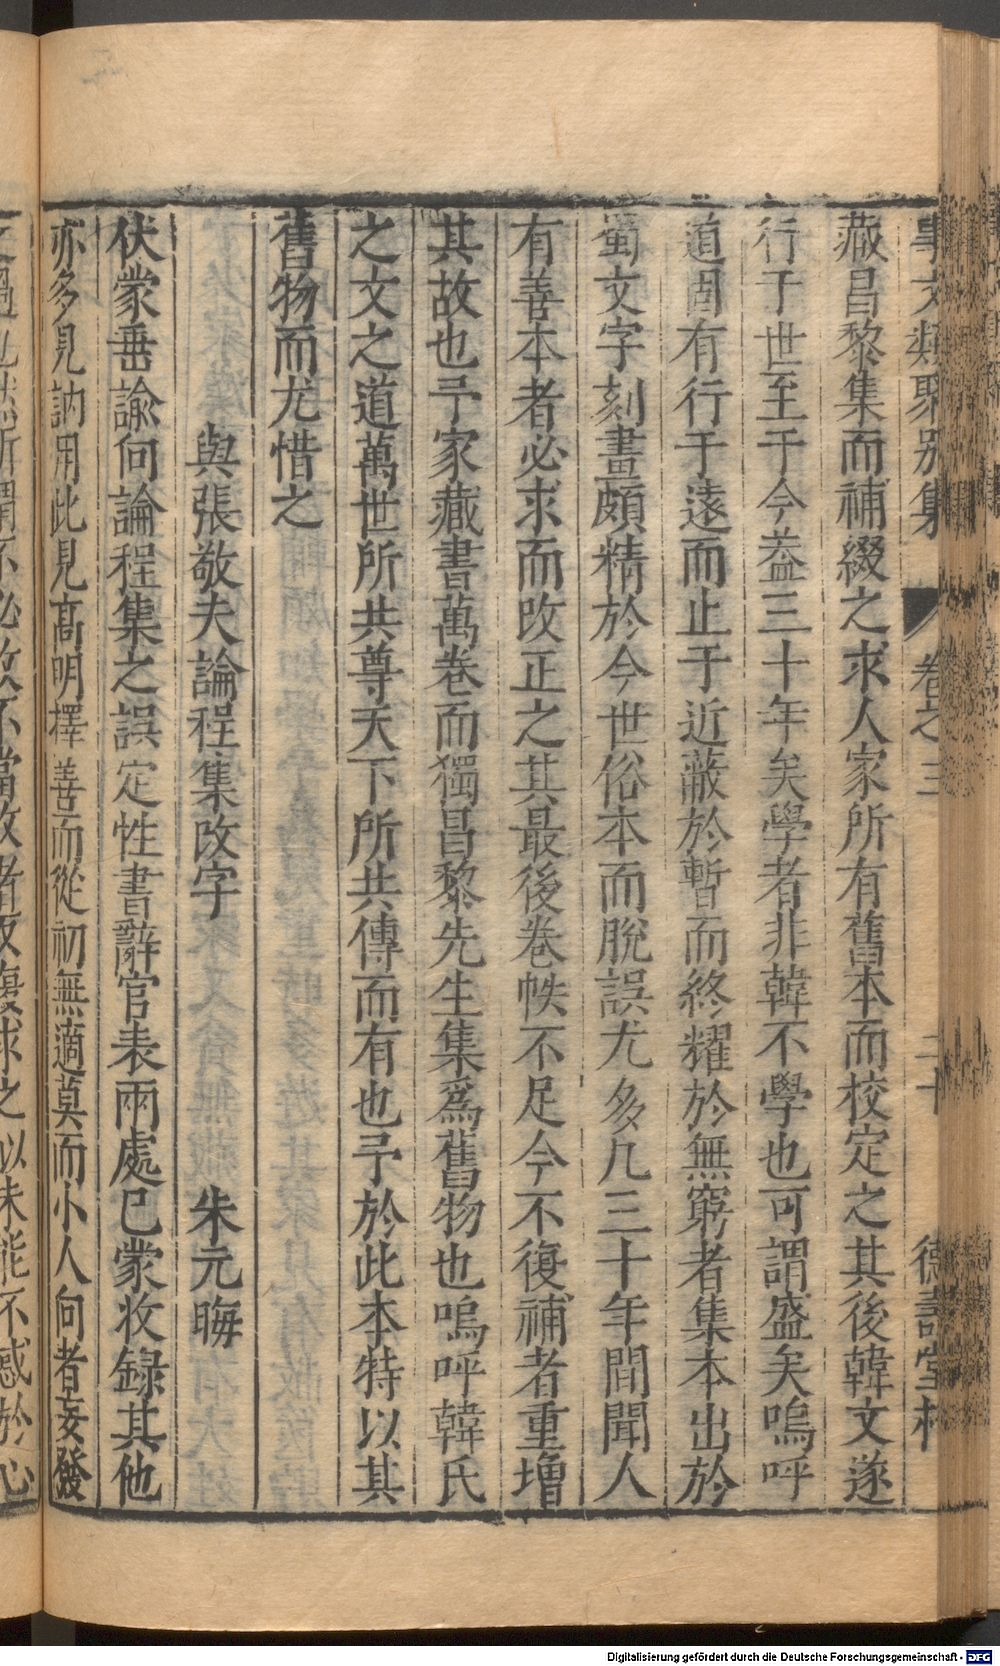 事文類聚別集 卷之三 二十 德壽堂梓
藏昌黎集而補綴之求人家所有舊本而校定之其後韓文遂
行于世至于今益三十年矣學者非韓不學也可謂盛矣嗚呼
道固有行于遠而止于近蔽於暫而終耀於無窮者集本出於
蜀文字刻畫頗精於今世俗本而脫誤尤多凡三十年間聞人
有善本者必求而改正之其最後卷帙不足今不復補者重增
其故也予家藏書萬卷而獨昌黎先生集爲舊物也嗚呼韓氏
之文之道萬世所共尊天下所共傳而有也予於此本特以其
舊物而尤惜之
與張敬夫論程集改字 朱元晦
伏蒙垂諭向論程集之誤定性書辭官表兩處已蒙收録其他
亦多見訥用此見高明擇善而從初無適莫而小人向者妄發
之過也然所謂不必改不當改者反復求之似未能不惑於心
Digitalisierung gefördert durch die Deutsche Forschungsgemeinschaft - DFG